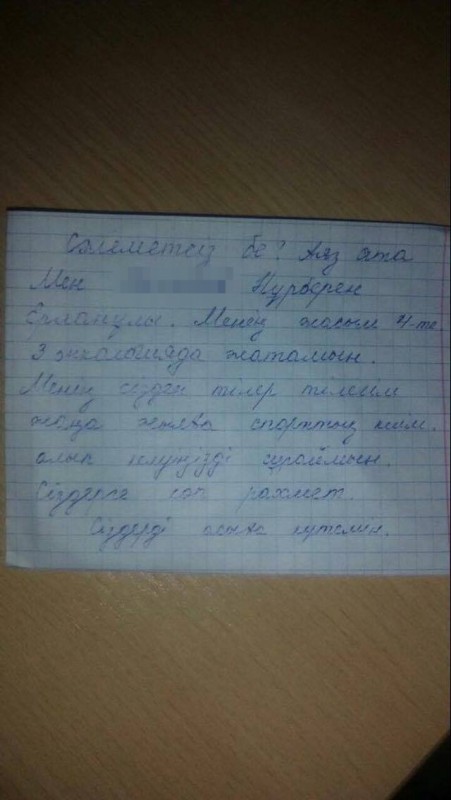 Сәлеметсіз бе? Аяз ата
Мен Нұрберен
Ерланұлы. Менең жасым 4-те
3 онкологияда жатамын.
Менең сізден тілер тілегім
жаңа жылға спорттың киім.
алып келуңізді сұраймын.
Сіздерге көп рахмет.
Сіздерді асыға күтемін.